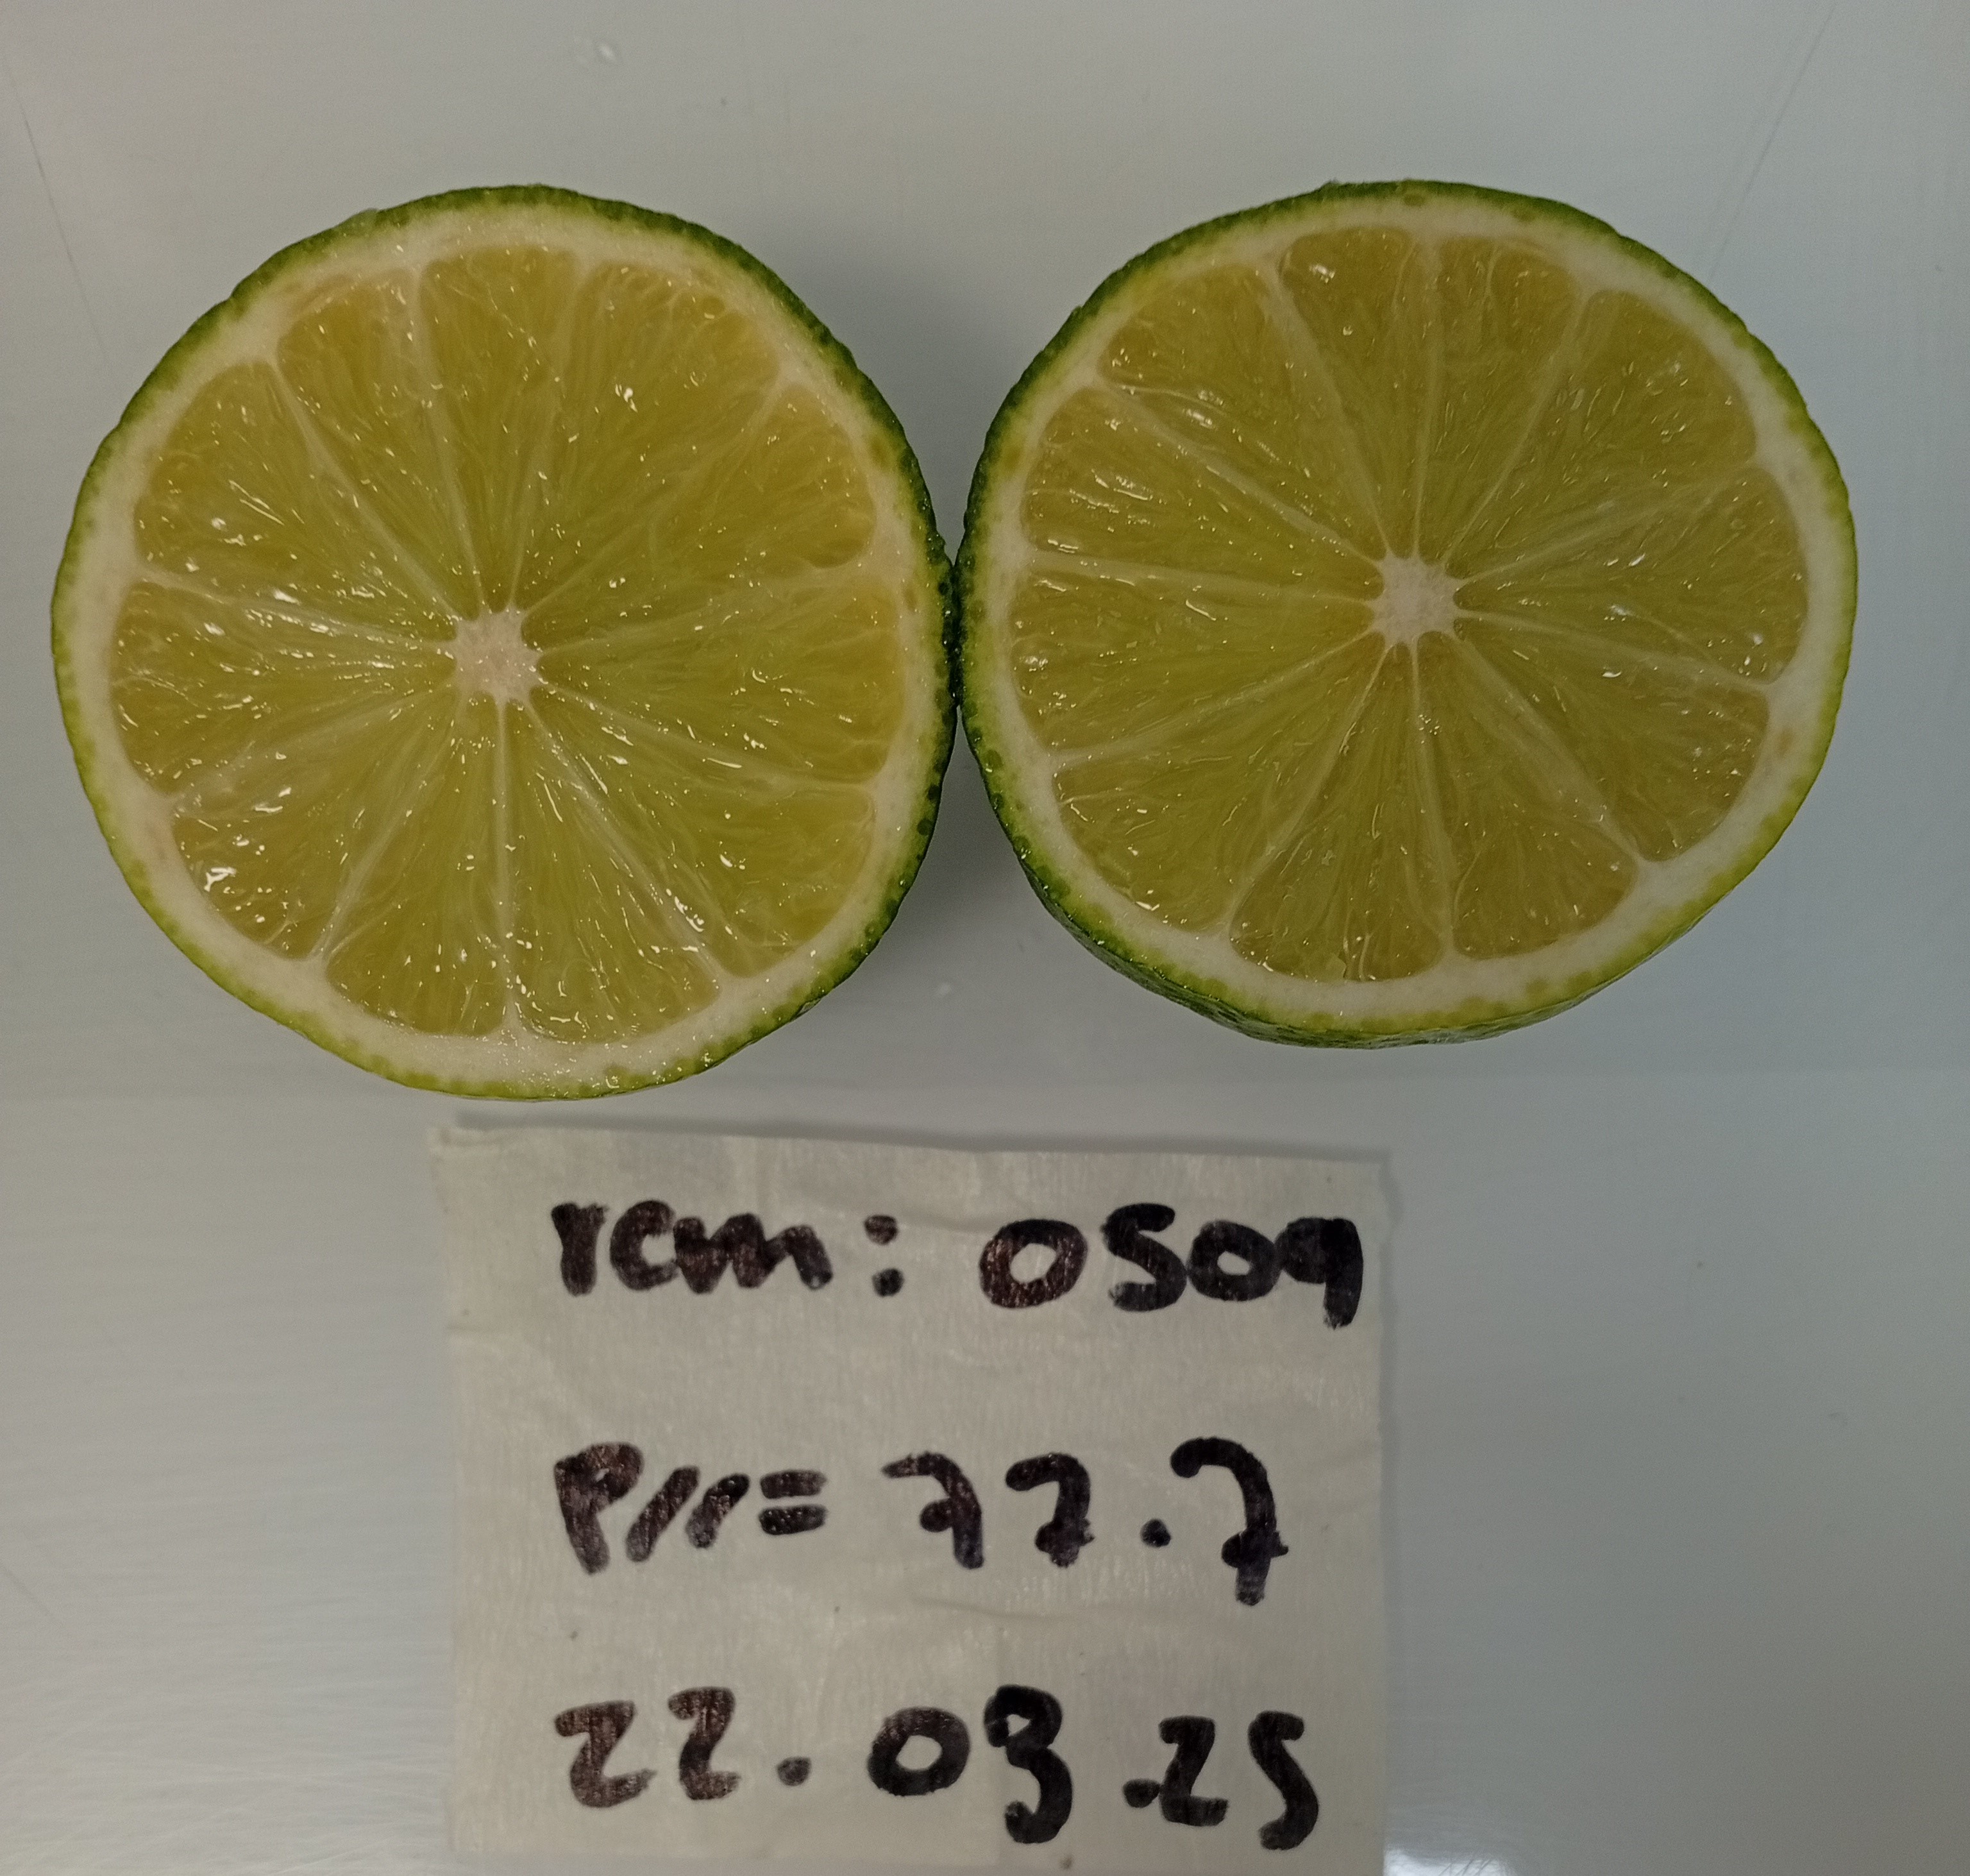 rcm: 0509
P//= 77.7
22.09.25